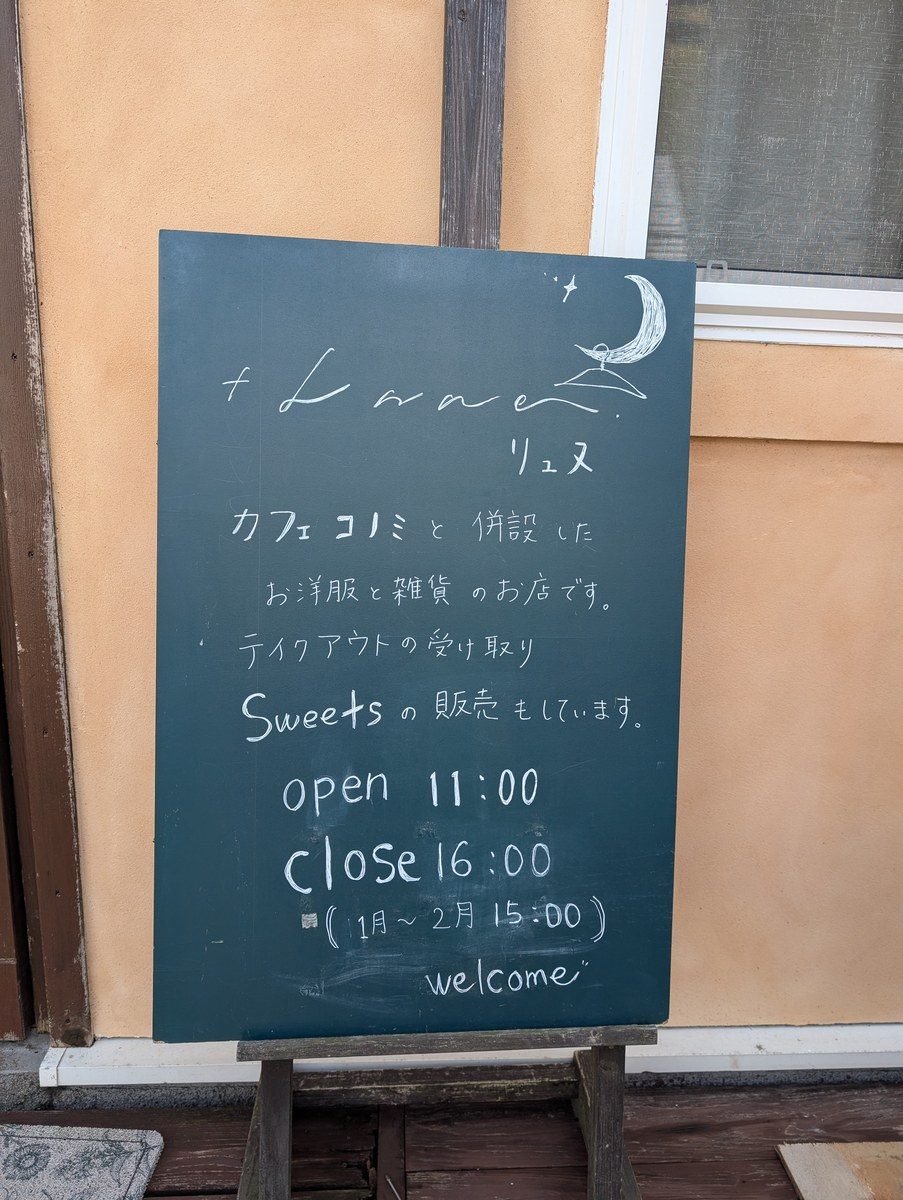 + Lune.
リュヌ
カフェ コノミと 併設した
お洋服と雑貨のお店です。
テイクアウトの受け取り
Sweetsの販売もしています。
open 11:00
close 16:00
(1月〜2月 15:00)
welcome